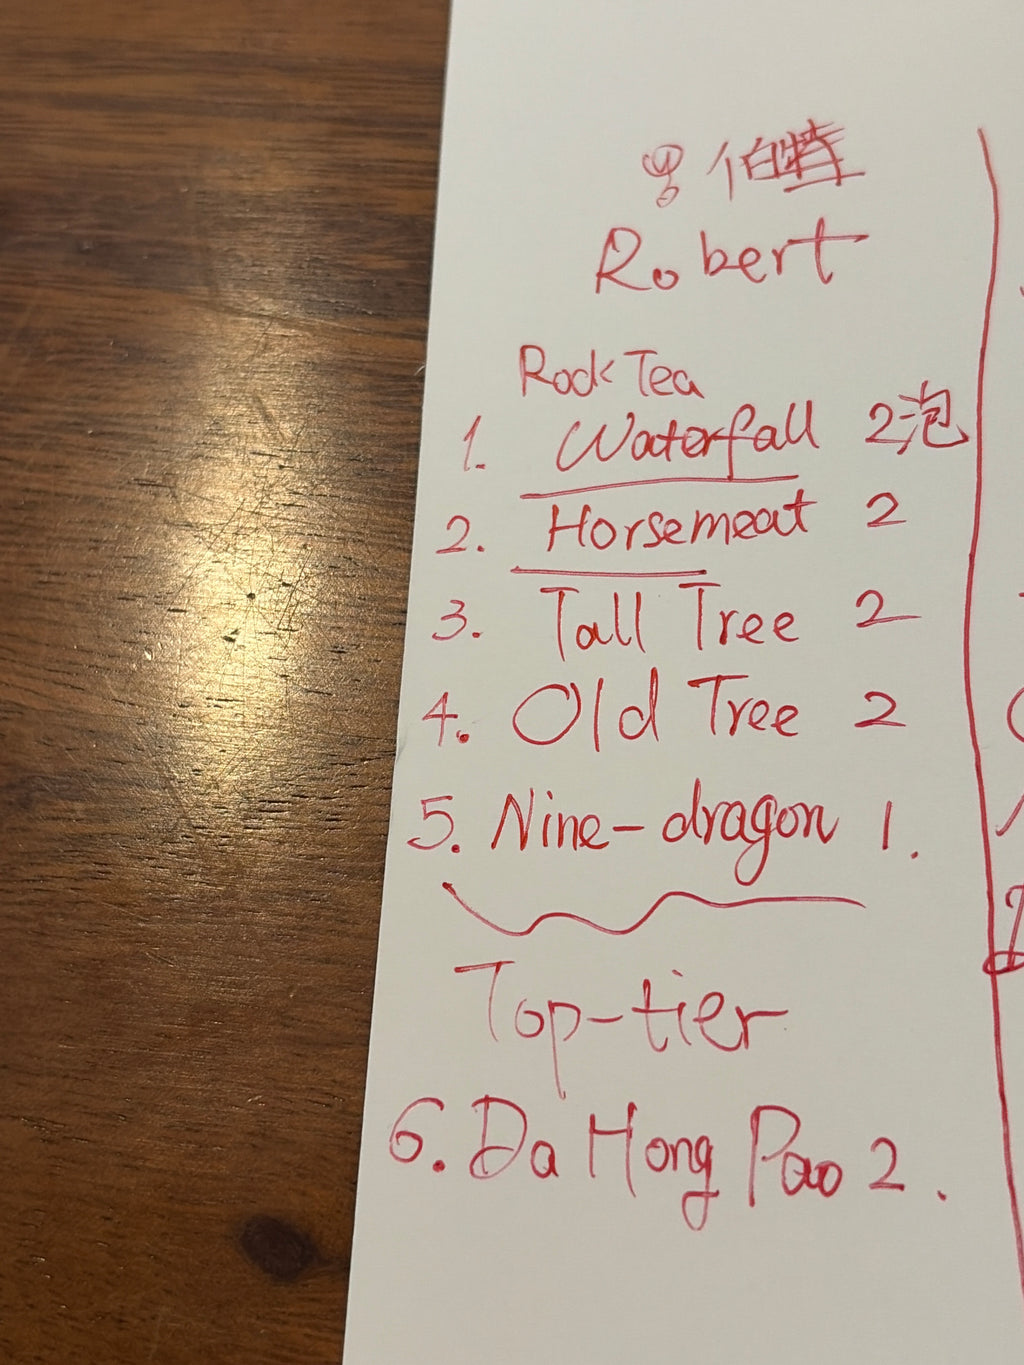 罗伯特
Robert
Rock Tea
1. Waterfall 2泡
2. Horsemeat 2
3. Tall Tree 2
4. Old Tree 2
5. Nine-dragon 1.
Top-tier
6. Da Hong Pao 2.